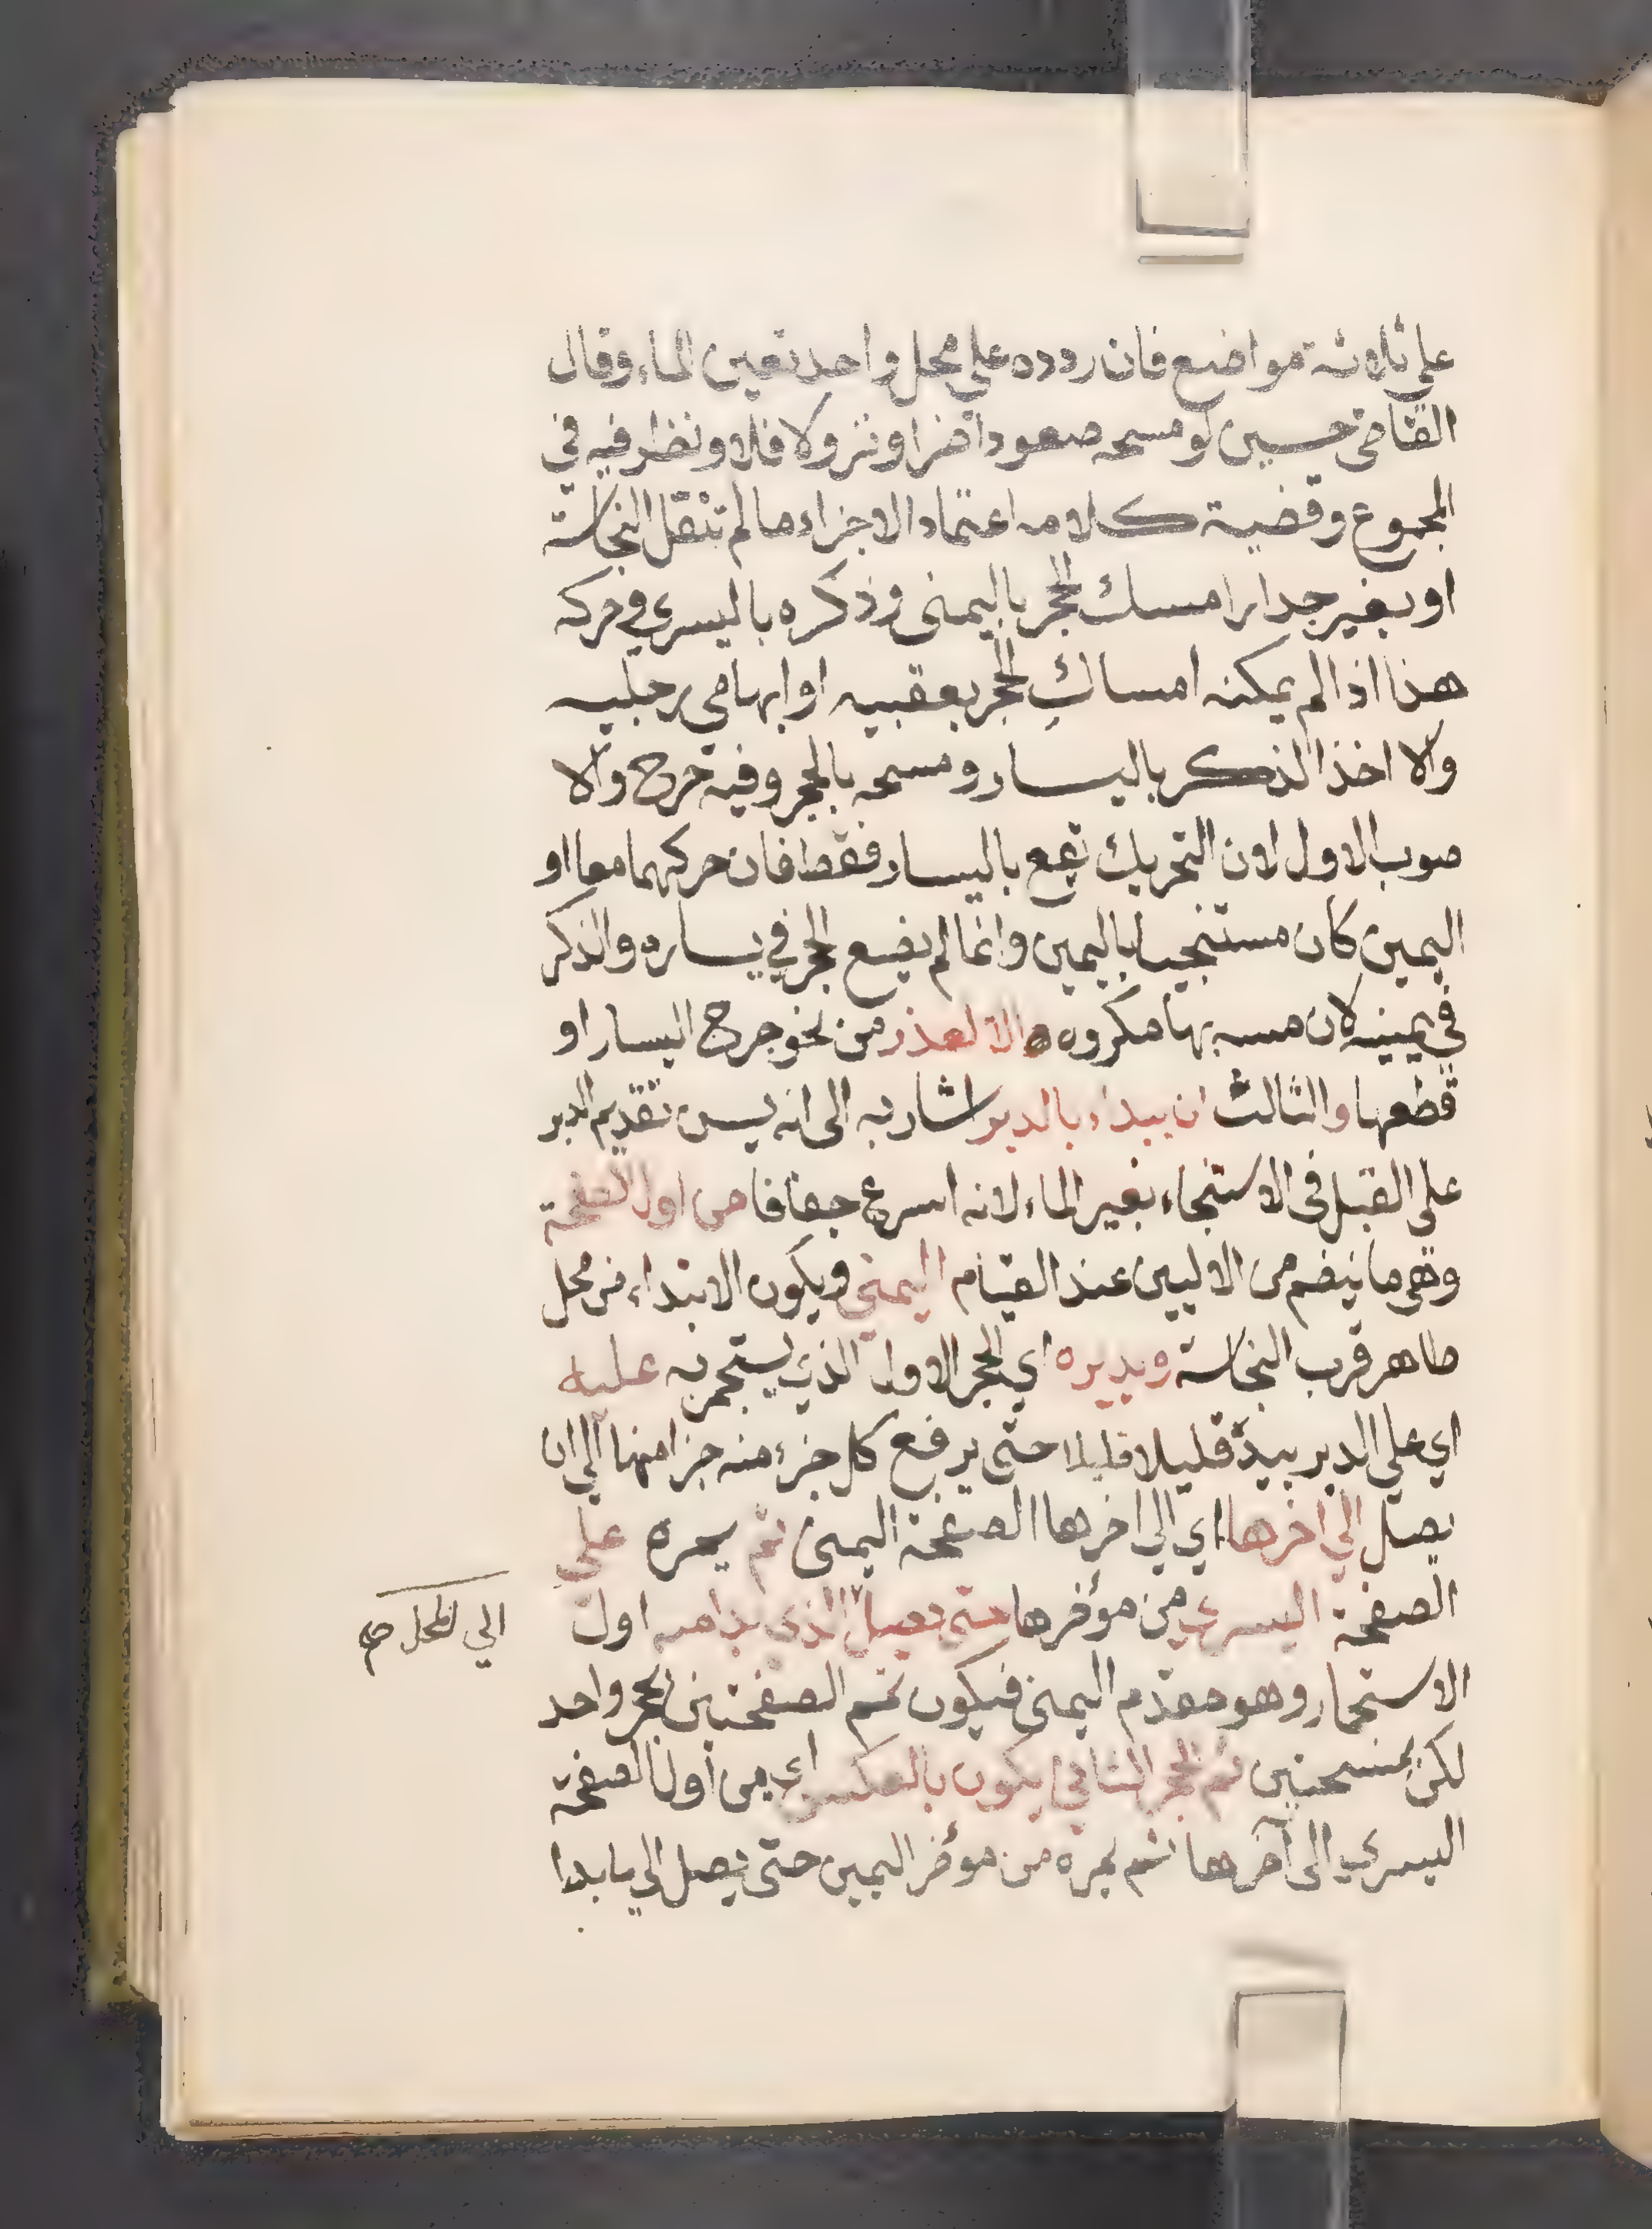 على ثلاثة مواضع فان ردده على محل واحد تعين الماء وقال
القاضى حسين لو مسحه صعودا ضرا ونزولا فلا ونظر فيه في
المجموع وقضية كلامه اعتماد الاجزاء مالم تنقل النجاسة
او بغير جدار امسك الحجر باليمنى وذكره باليسرى وحركه
هذا اذا لم يمكنه امساك الحجر بعقبيه او ابهامى رجليه
والا اخذ الذكر باليسار ومسحه بالحجر وفيه حرج والا
صوب الاول لان التحريك يقع باليسار فقط فان حركهما معا او
اليمين كان مستنجيا باليمين وانما لم يضع الحجر في يساره والذكر
في يمينه لان مسه بها مكروه الا لعذر من نحو جرح اليسار او
قطعها والثالث ان يبداء بالدبر اشار به الى انه يسن تقديم الدبر
على القبل فى الاستنجاء بغير الماء لانه اسرع جفافا من اول الصفحة
وهى ما ينضم من الاليين عند القيام اليمنى ويكون الابتداء من محل
طاهر قرب النجاسة ويديره اي الحجر الاول الذي يستجمر به عليه
اي على الدبر بيده قليلا قليلا حتى يرفع كل جزء منه جزا منها الي ان
يصل الي اخرها اي الي اخرها الصفحة اليمنى ثم يمره على
الصفحة اليسرى من مؤخرها حتى يصل الذى بدا منه اول
الي المحل صح
الاستجمار وهو مقدم اليمنى فيكون تمم الصفحتين بحجر واحد
لكن بمسحتين ثم الحجر الثاني يكون بالعكس اى من اول الصفحة
اليسرى الى آخرها ثم يمره من مؤخر اليمين حتى يصل الي ما بدا